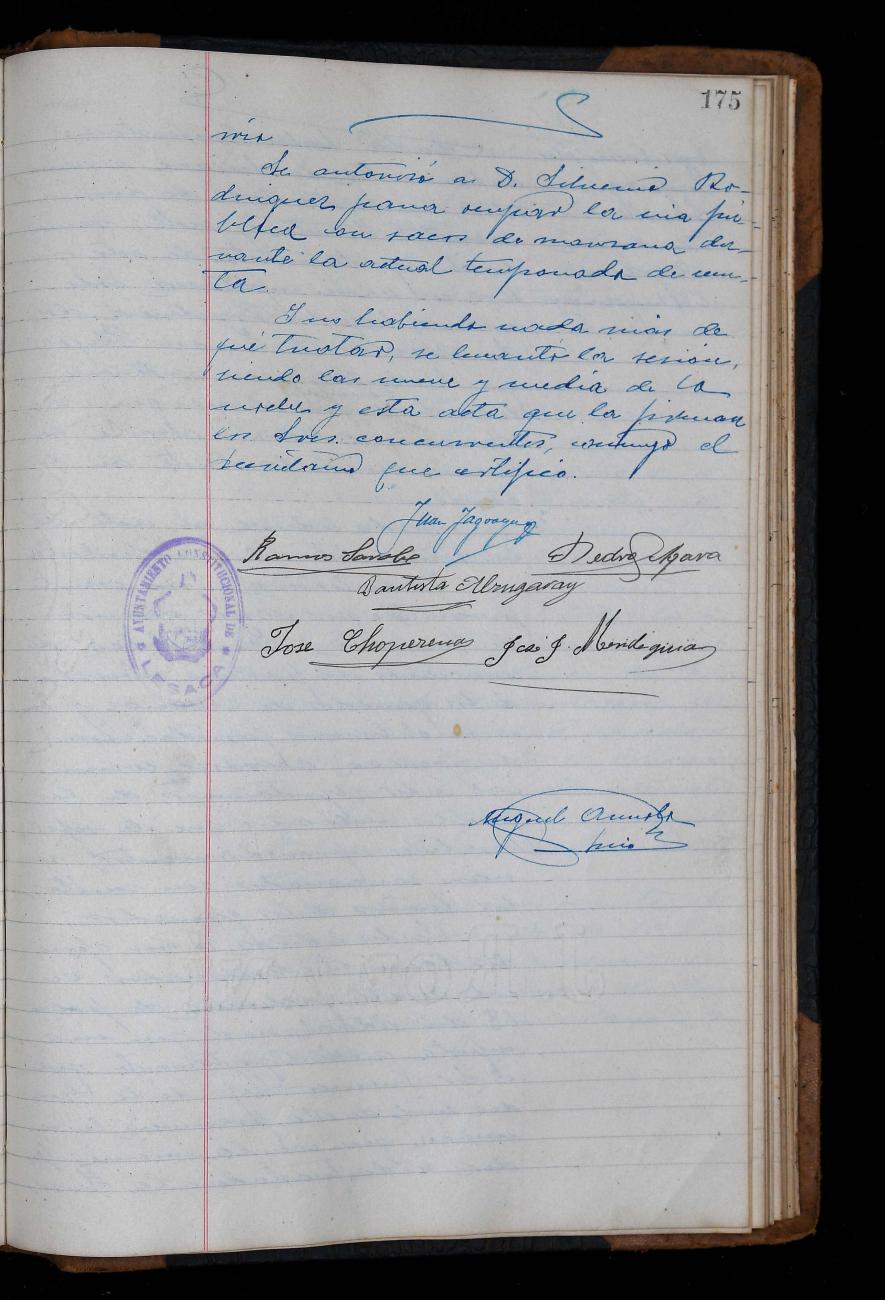 175
rio
Se autorizó a D. Silverio Ro-
driguez para ocupar la via pú-
blica con sacos de manzana du-
rante la actual temporada de ven-
ta.
Y no habiendo nada más de
qué tratar, se levantó la sesión,
siendo las nueve y media de la
noche y esta acta que la firman
los Sres. concurrentes, conmigo el
secretario que certifico.
Juan
Ramos Pedro
Bautista
Jose Choperena José J. Mendiguia
Miguel
Srio
AYUNTAMIENTO CONSTITUCIONAL DE
LESACA